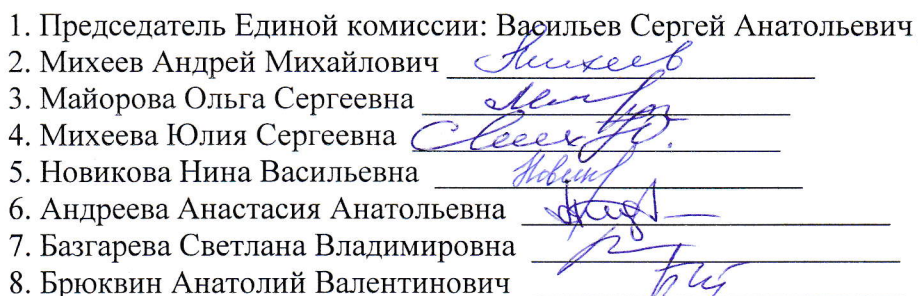 1. Председатель Единой комиссии: Васильев Сергей Анатольевич
2. Михеев Андрей Михайлович Михеев
3. Майорова Ольга Сергеевна
4. Михеева Юлия Сергеевна
5. Новикова Нина Васильевна
6. Андреева Анастасия Анатольевна
7. Базгарева Светлана Владимировна
8. Брюквин Анатолий Валентинович